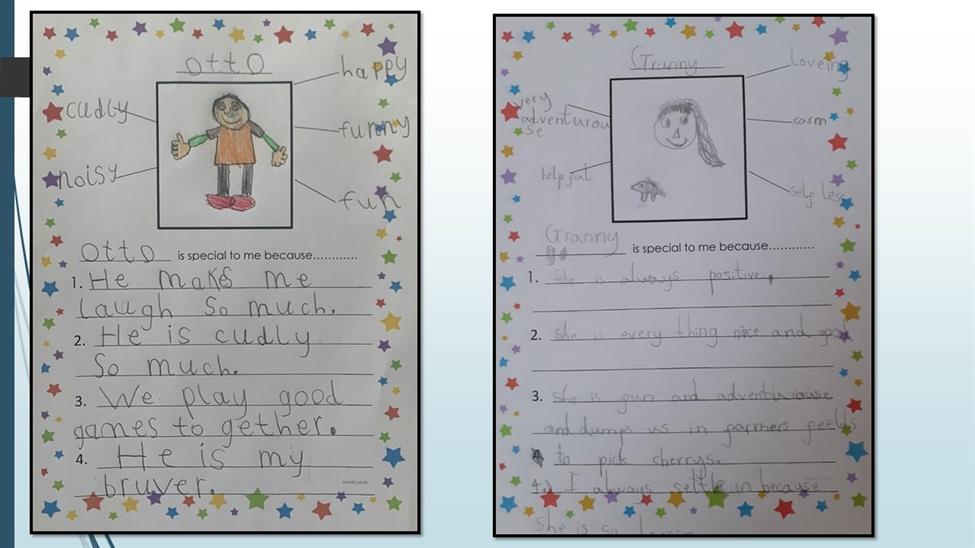 Otto
happy
cudly
funny
noisy
fun
Otto is special to me because............
1. He maks me
laugh So much.
2. He is cudly
So much.
3. We play good
games to gether.
4. He is my
bruver.
Granny
loveing
very
adventurou
se
carm
helpful
self less
Granny is special to me because............
1. She is always positive.
2. She is every thing nice and
3. She is fun and
and dumps us in farmers feelds
to pick cherrys.
4.) I always settle in because
She is so